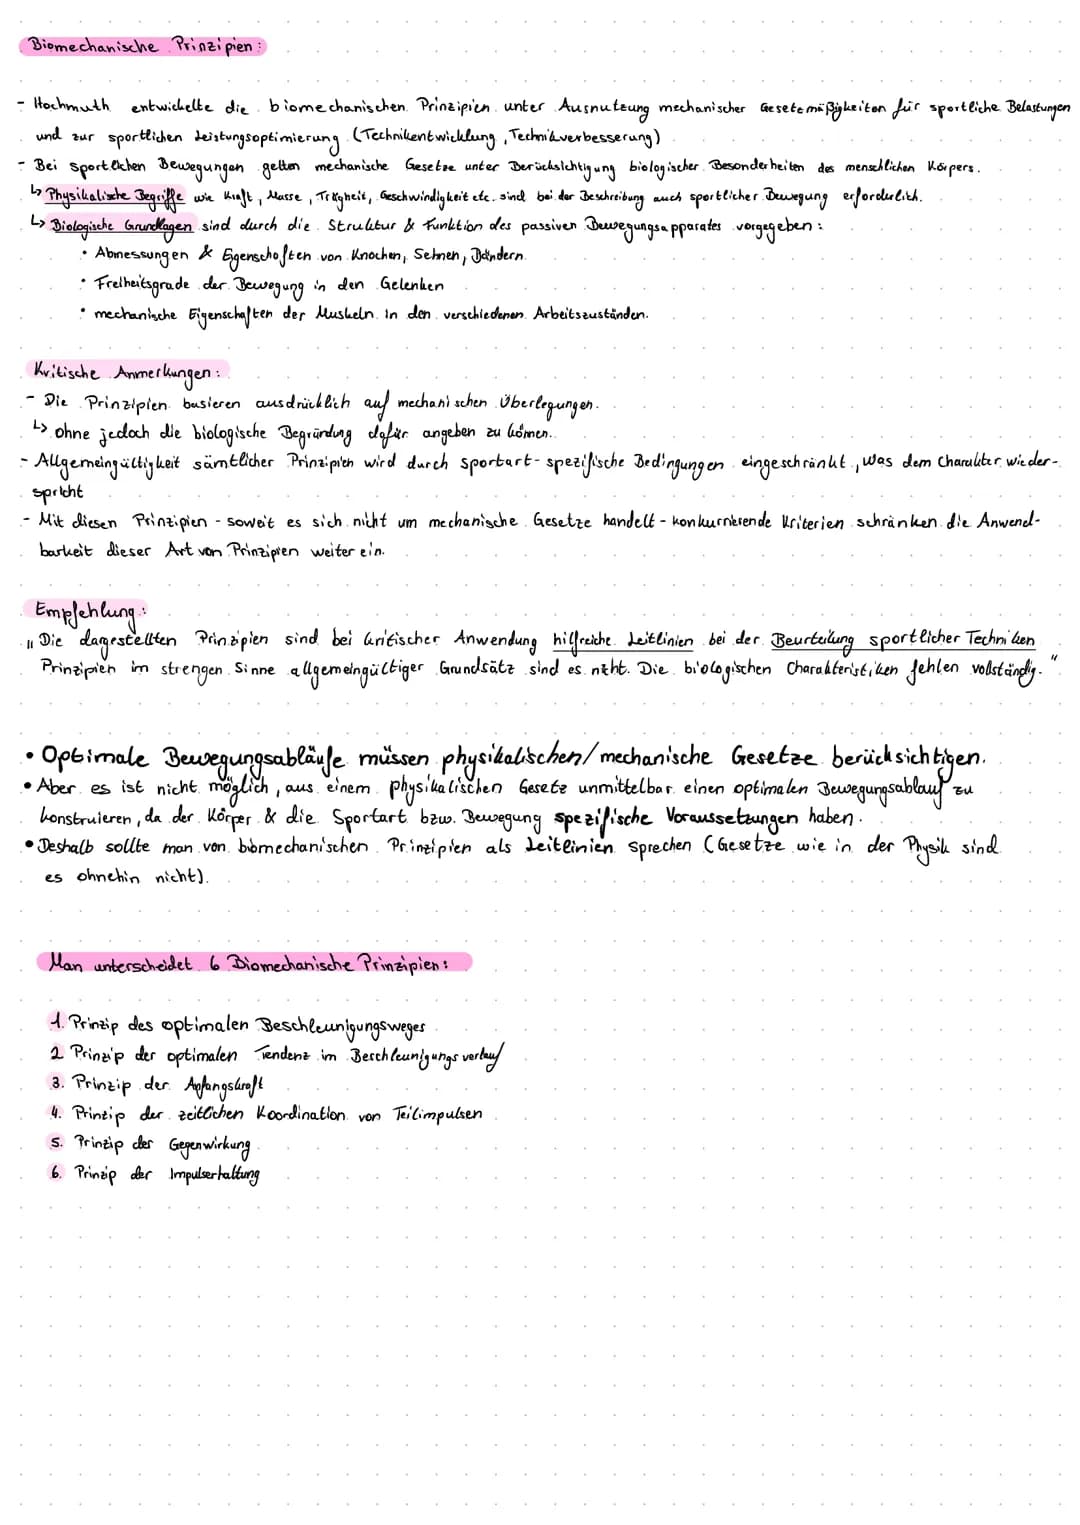 Biomechanische Prinzipien:
- Hochmuth entwickelte die biomechanischen Prinzipien unter Ausnutzung mechanischer Gesetzmäßigkeiten für sportliche Belastungen
und zur sportlichen Leistungsoptimierung (Technikentwicklung, Technikverbesserung)
- Bei sportlichen Bewegungen gelten mechanische Gesetze unter Berücksichtigung biologischer Besonderheiten des menschlichen Körpers.
↳ Physikalische Begriffe wie Kraft, Masse, Trägheit, Geschwindigkeit etc. sind bei der Beschreibung auch sportlicher Bewegung erforderlich.
↳ Biologische Grundlagen sind durch die Struktur & Funktion des passiven Bewegungsapparates vorgegeben:
• Abmessungen & Eigenschaften von Knochen, Sehnen, Bändern
• Freiheitsgrade der Bewegung in den Gelenken
• mechanische Eigenschaften der Muskeln in den verschiedenen Arbeitszuständen.
Kritische Anmerkungen:
- Die Prinzipien basieren ausdrücklich auf mechanischen Überlegungen.
↳ ohne jedoch die biologische Begründung dafür angeben zu können.
- Allgemeingültigkeit sämtlicher Prinzipien wird durch sportart-spezifische Bedingungen eingeschränkt, was dem Charakter wieder-
spricht
- Mit diesen Prinzipien - soweit es sich nicht um mechanische Gesetze handelt - konkurrierende Kriterien schränken die Anwend-
barkeit dieser Art von Prinzipien weiter ein.
Empfehlung:
„Die dargestellten Prinzipien sind bei kritischer Anwendung hilfreiche Leitlinien bei der Beurteilung sportlicher Techniken
Prinzipien im strengen Sinne allgemeingültiger Grundsätz sind es nicht. Die biologischen Charakteristiken fehlen vollständig."
• Optimale Bewegungsabläufe müssen physikalischen/mechanische Gesetze berücksichtigen.
• Aber es ist nicht möglich, aus einem physikalischen Gesetz unmittelbar einen optimalen Bewegungsablauf zu
konstruieren, da der Körper & die Sportart bzw. Bewegung spezifische Voraussetzungen haben.
• Deshalb sollte man von biomechanischen Prinzipien als Leitlinien sprechen (Gesetze wie in der Physik sind
es ohnehin nicht).
Man unterscheidet 6 Biomechanische Prinzipien:
1. Prinzip des optimalen Beschleunigungsweges
2 Prinzip der optimalen Tendenz im Beschleunigungsverlauf
3. Prinzip der Anfangskraft
4. Prinzip der zeitlichen Koordination von Teilimpulsen
5. Prinzip der Gegenwirkung
6. Prinzip der Impulserhaltung